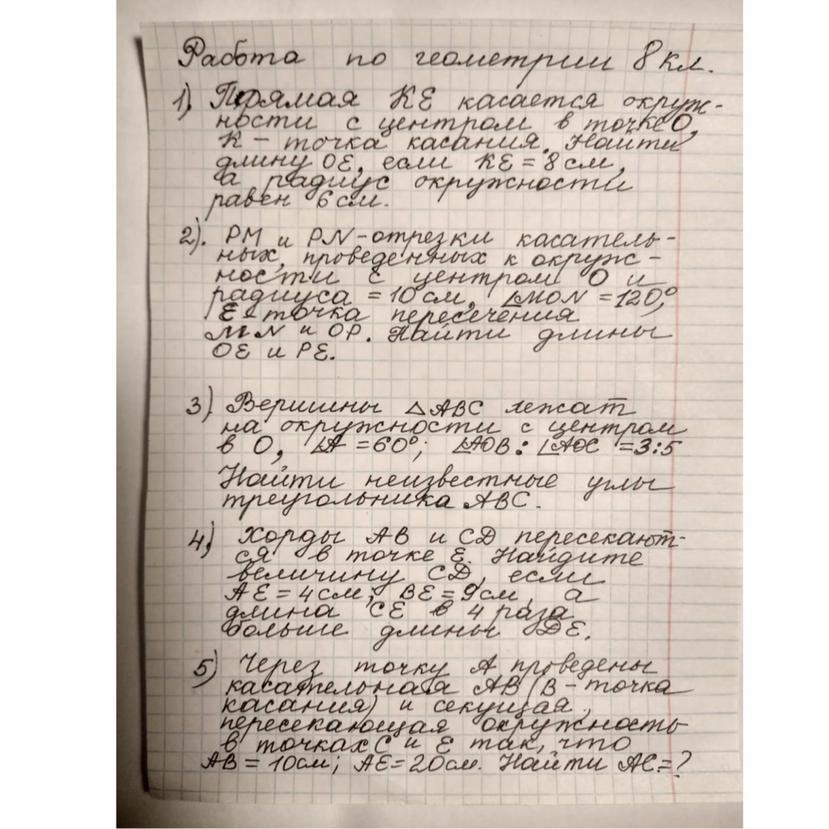 Работа по геометрии 8 кл.
1). Прямая КЕ касается окруж-
ности с центром в точке О,
К – точка касания. Найти
длину ОЕ, если КЕ = 8 см,
а радиус окружности
равен 6 см.
2). РМ и PN – отрезки касатель-
ных, проведенных к окруж-
ности с центром О и
радиуса = 10 см, ∠MON = 120°,
Е – точка пересечения
MN и ОР. Найти длины
ОЕ и РЕ.
3) Вершины △АВС лежат
на окружности с центром
в О, ∠А = 60°; ∠АОВ : ∠АОС = 3:5
Найти неизвестные углы
треугольника АВС.
4) Хорды АВ и CD пересекают-
ся в точке Е. Найдите
величину CD, если
АЕ = 4 см; ВЕ = 9 см, а
длина СЕ в 4 раза
больше длины DE.
5) Через точку А проведены
касательная АВ (В – точка
касания) и секущая,
пересекающая окружность
в точках С и Е так, что
АВ = 10 см; АЕ = 20 см. Найти АС = ?